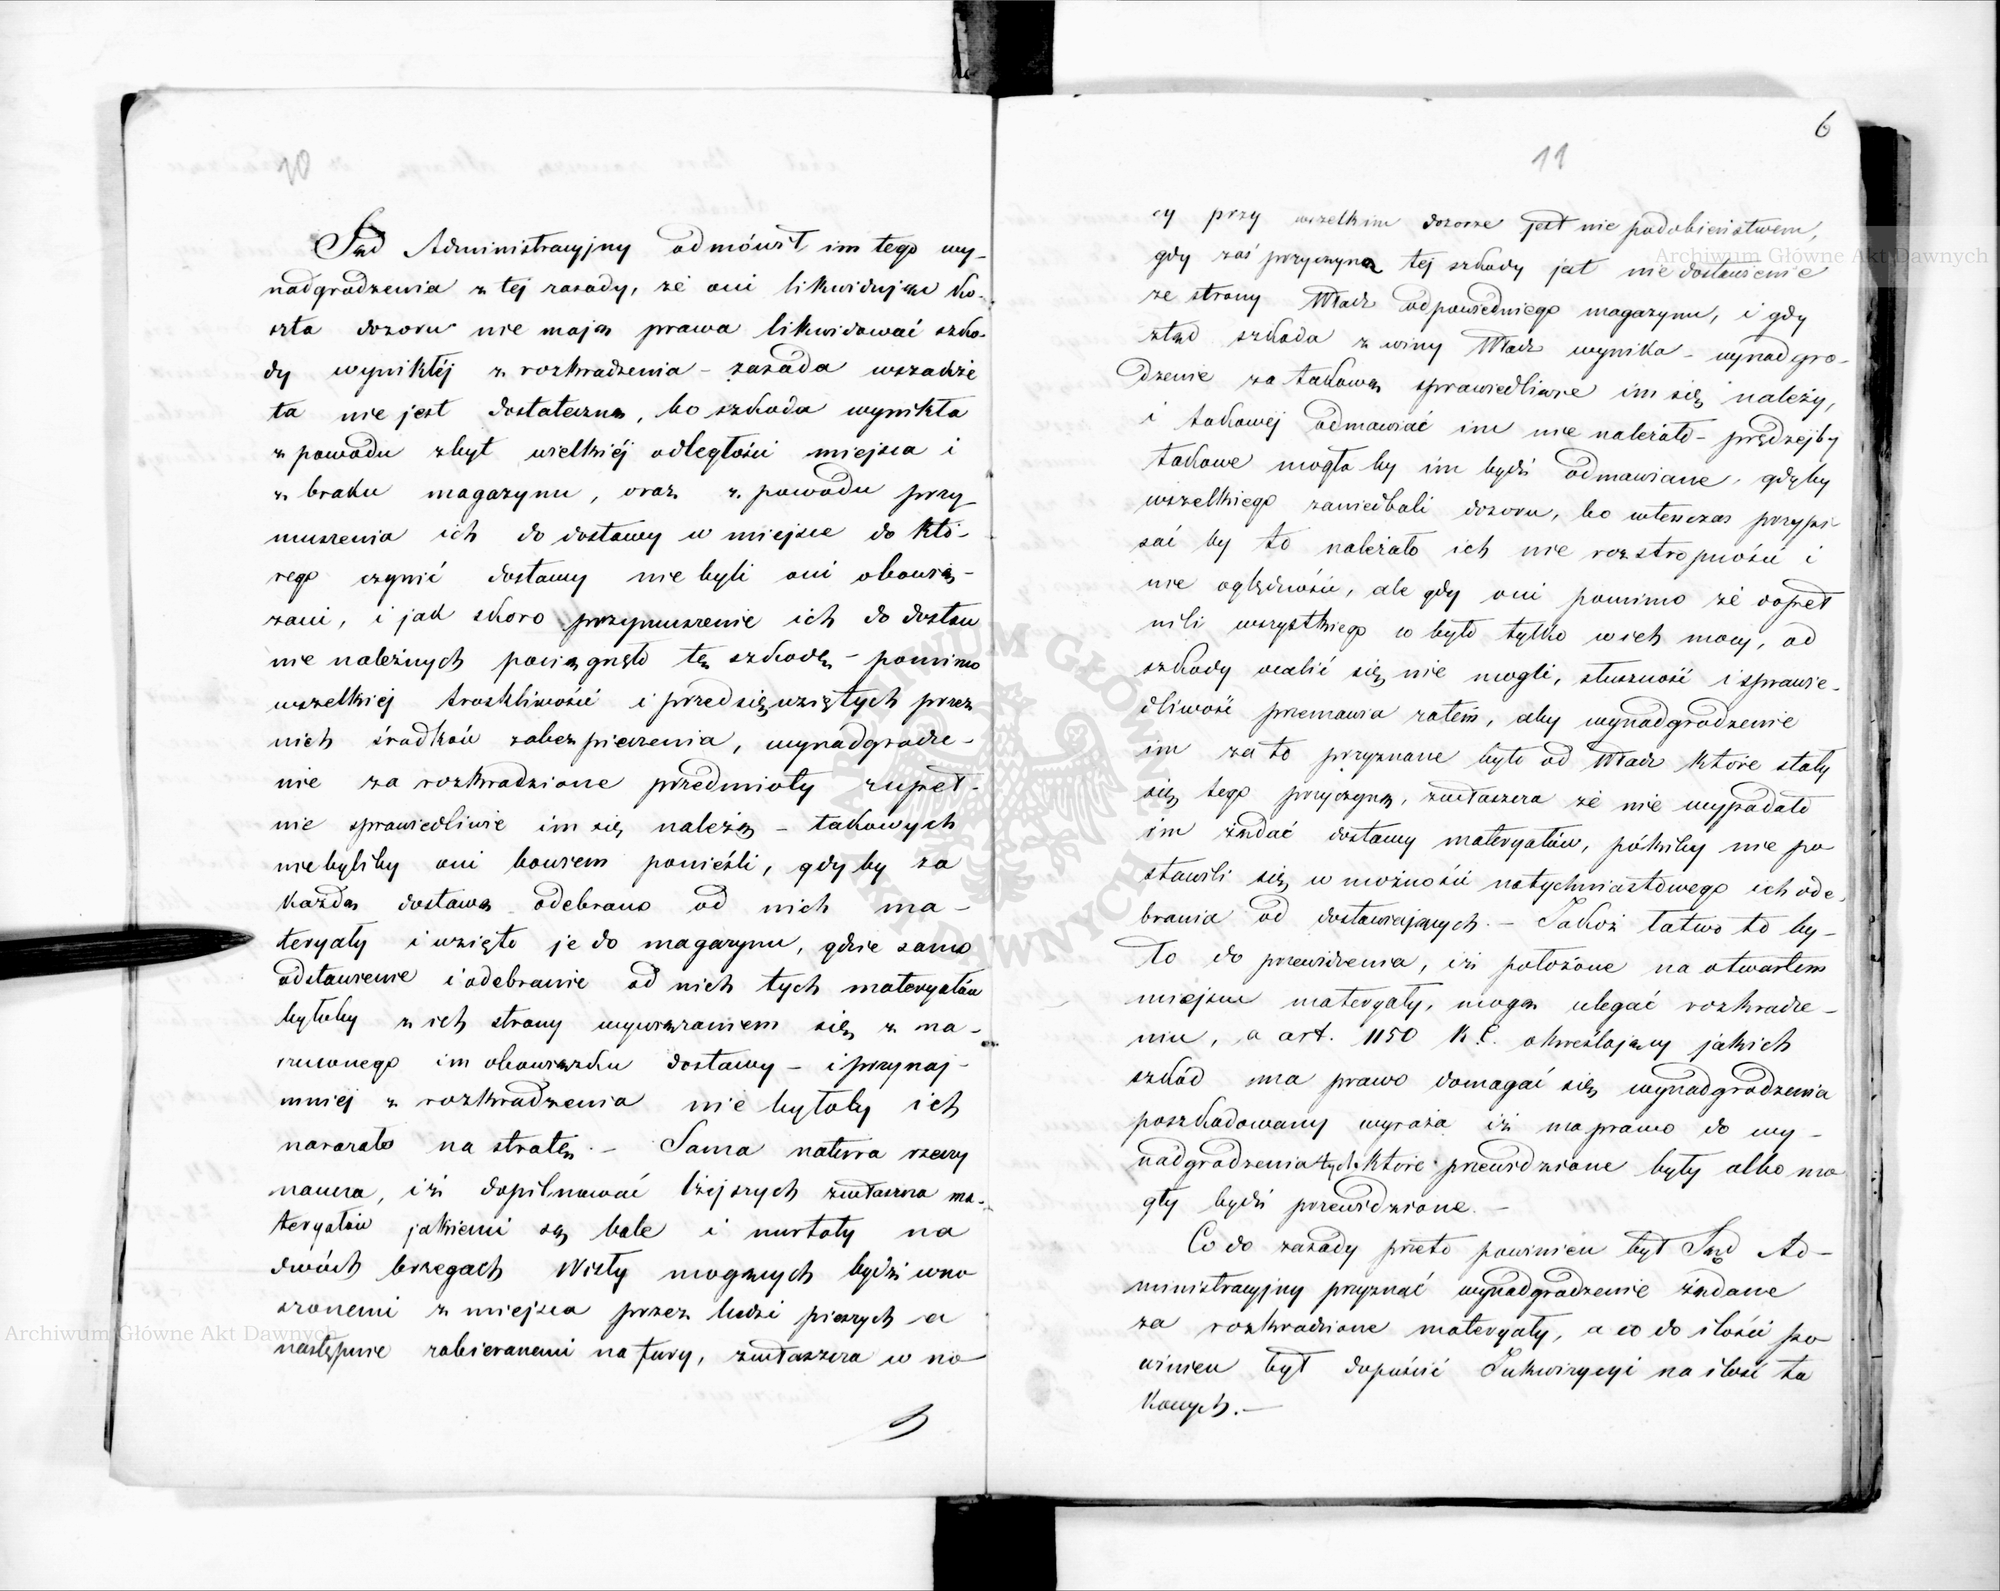 10
Sąd Administracyjny odmówił im tego wy-
nadgrodzenia z tej zasady, że oni likwidując ko-
szta dozoru nie mają prawa likwidować szko-
dy wynikłéj z rozkradzenia – zasada wszakże
ta nie jest dostateczną, bo szkoda wynikła
z powodu zbyt wielkiéj odległości miejsca i
z braku magazynu, oraz z powodu przy
muszenia ich do dostawy w miejsce do któ-
rego czynić dostawy nie byli oni obowią-
zani, i jak skoro przymuszenie ich do dostaw
nie należnych pociągnęło tę szkodę – pomimo
wszelkiej troskliwości i przedsięwziętych przez
nich środków zabezpieczenia, wynadgrodze-
nie za rozkradzione przedmioty zupeł-
nie sprawiedliwie im się należy – takowych
nie byliby oni bowiem ponieśli, gdyby za
każdą dostawą odebrano od nich ma-
teryały i wzięto je do magazynu, gdzie samo
odstawienie i odebranie od nich tych materyałów
byłoby z ich strony wywiązaniem się z na-
rzuconego im obowiązku dostawy – i przynaj-
mniej z rozkradzenia nie byłoby ich
naraziło na stratę. – Sama natura rzeczy
naucza, iż dopilnować lżejszych zwłaszcza ma-
teryałów jakiemi są bale i murłaty na
dwóch brzegach Wisły mogących bydź wno
szonemi z miejsca przez ludzi pieszych a
następnie zabieranemi na fury, zwłaszcza w no
6
11
cy przy wszelkim dozorze jest nie podobieństwem,
gdy zaś przyczyną tej szkody jest nie dostawienie
ze strony Władz odpowiedniego magazynu, i gdy
ztąd szkoda z winy Władz wynika – wynadgro-
dzenie za takową sprawiedliwie im się należy,
i takowej odmawiać im nie należało – prędzejby
takowe mogło by im bydź odmawiane, gdyby
wszelkiego zaniedbali dozoru, bo wtenczas przypi
sać by to należało ich nie rozstropności i
nie oględności, ale gdy oni pomimo że dopeł
nili wszystkiego co było tylko w ich mocy, od
szkody ocalić się nie mogli, słuszność i sprawie-
dliwość przemawia zatém, aby wynadgrodzenie
im za to przyznane było od Władz które stały
się tego przyczyną, zwłaszcza że nie wypadało
im żądać dostawy materyałów, pókiby nie po
stawili się w możności natychmiastowego ich ode-
brania od dostawiających. – Jakoż łatwo to by-
ło do przewidzenia, iż położone na otwartem
miejscu materyały, mogą ulegać rozkradze-
niu, a art. 1150 K.C. określający jakich
szkód ma prawo domagać się wynadgrodzenia
poszkodowany wyraża iż ma prawo do wy-
nadgrodzenia tych które przewidziane były albo mo
gły bydź przewidziane. –
Co do zasady przeto powinien był Sąd Ad-
ministracyjny przyznać wynadgrodzenie żądane
za rozkradzione materyały, a co do ilości po
winien był dopuścić Inkwizycyi na ilość ta
kowych. –
Archiwum Główne Akt Dawnych
Archiwum Główne Akt Dawnych
ARCHIWUM GŁÓWNE AKT DAWNYCH